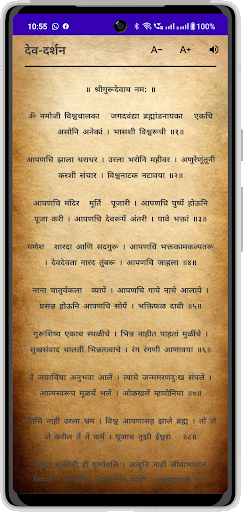 10:55
देव-दर्शन A− A+
॥ श्रीगुरूदेवाय नमः ॥
ॐ नमोजी विश्वचालका । जगदवंद्या ब्रह्मांडनायका । एकचि
असोनि अनेका । भाससी विश्वरूपी ॥१॥
आपणचि झाला धराधर । उरला भरोनि महीवर । अणुरेणूंतूनी
करशी संचार । विश्वनाटक नटावया ॥२॥
आपणचि मंदिर मूर्ति पूजारी । आपणचि पुष्पें होऊनि
पूजा करी । आपणचि देवरूपें अंतरी । पावे भक्तां ॥३॥
गणेश शारदा आणि सदगुरू । आपणचि भक्तकामकल्पतरू
। देवदेवता नारद तुंबरू । आपणचि जाहला ॥४॥
नाना चातुर्यकला व्यापें । आपणचि गाये नाचे आलापे ।
प्रसन्न होऊनि आपणचि सोपें । भक्तिफळ दावी ॥५॥
गुरूशिष्य एकाच स्थळीचे । भिन्न नाहीत पाहता मुळींचे ।
सुखसंवाद चालती भिन्नतत्वाचे । रंग रंगणी आणावया ॥६॥
हें जयाचिया अनुभवा आलें । त्याचे जन्ममरणदुःख संपले ।
आत्मस्वरूप मूळचें भलें । ओळखलें म्हणोनिया ॥७॥
नाही उरला भ्रम । विश्व आपणासह झाले ब्रह्म । तो जे
जे करील तें तें कर्म । पूजाच तुझी ईश्वरा ॥८॥